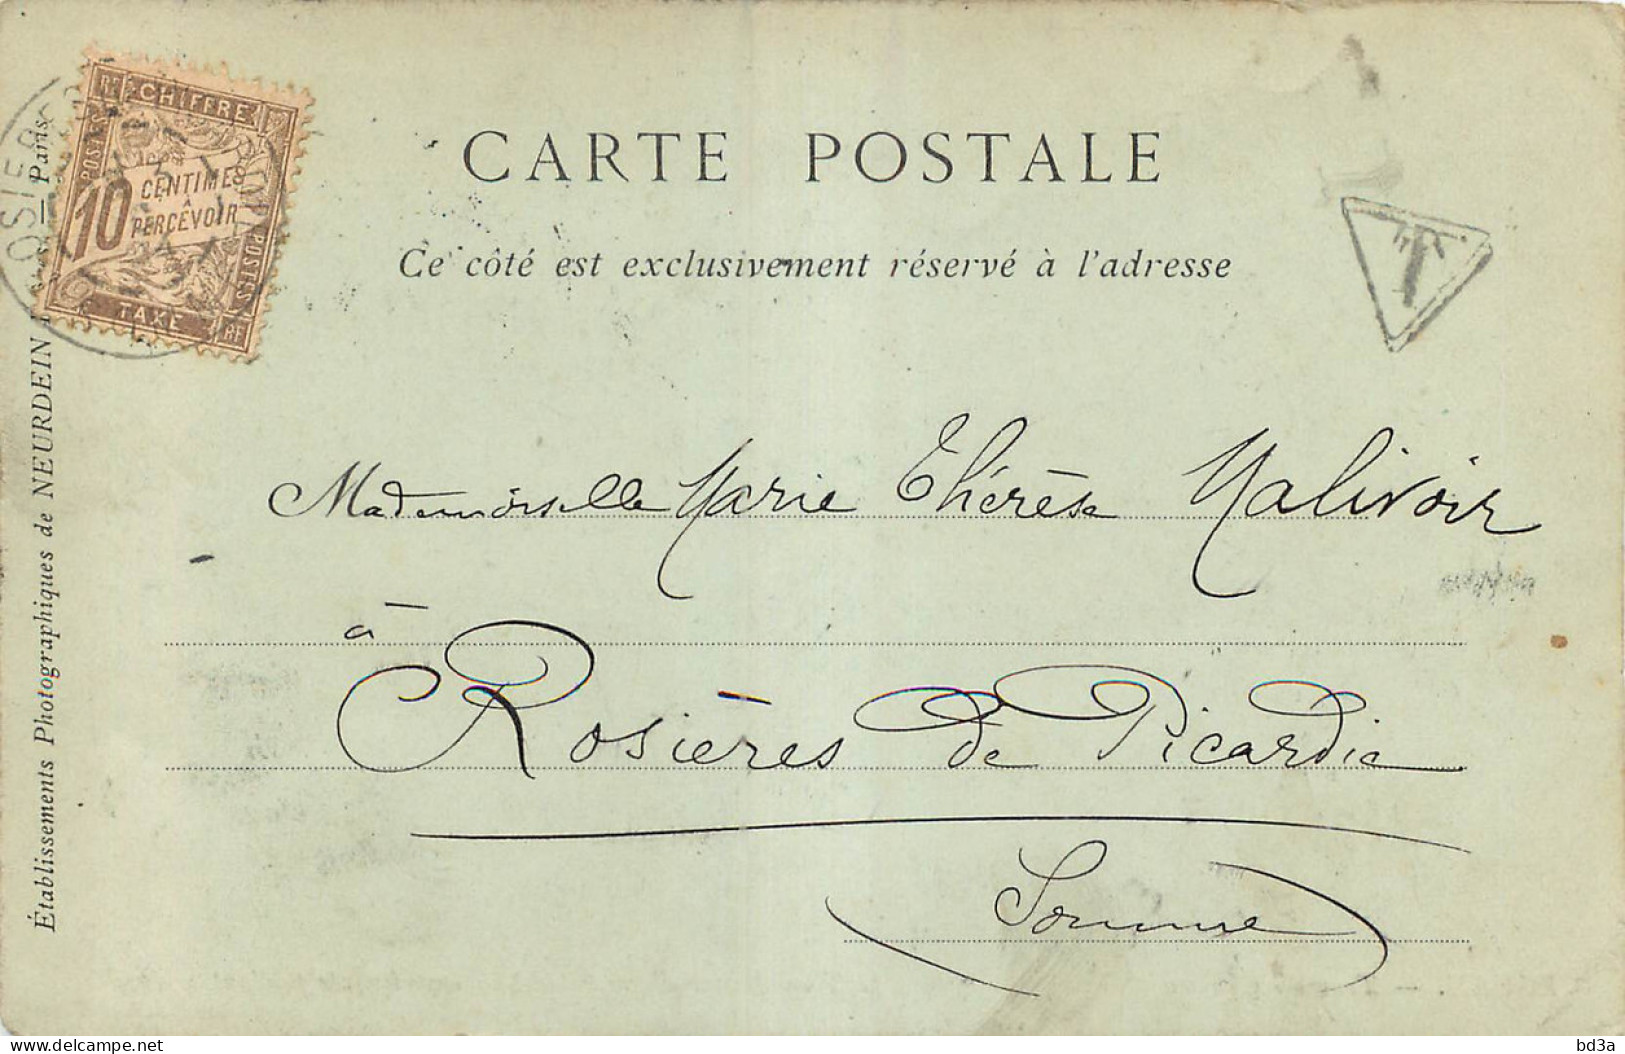 CARTE POSTALE
Ce côté est exclusivement réservé à l'adresse
RF CHIFFRE
POSTES
10 CENTIMES
À
PERCEVOIR
POSTES
TAXE RF
T
Établissements Photographiques de NEURDEIN Paris
Mademoiselle Marie Thérèse Malivoir
à
Rosières de Picardie
Somme
delcampe.net
bd3a